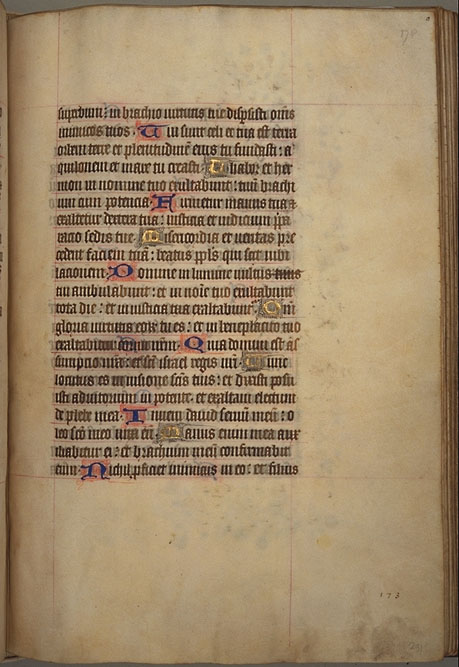 suꝑbum: in brachio uirtutis tue disꝑsisti om̄s
inimicos tuos. Tui sunt celi et tua est terra
orbem terre et plenitudinē eius tu fundasti: a
quilonem et mare tu creasti. Thabor et her
mon in nomine tuo exultabunt: tuū brachi
um cum potencia. Firmetur manus tua &
exaltetur dextera tua: iusticia et iudicium p̄pa
racio sedis tue. Misericordia et ueritas pre
cedent faciem tuā: beatus ppl̄s qui scit iubi
lacionem. Domine in lumine uultus tuus
tui ambulabunt: et in noīe tuo exultabunt
tota die: et in iusticia tua exaltabuntur. Qm̄
gloria uirtutis eoꝝ tu es: et in beneplacito tuo
exaltabitur cornu nr̄m. Quia domini est as
sumptio nr̄a: et sc̄i israel regis nr̄i. Tunc
locutus es in uisione sc̄is tuis: et dixisti posu
isti adiutorium in potente: et exaltaui electum
de plebe mea. Inueni dauid seruū meū: o
leo sc̄o meo unxi eū. Manus enim mea aux
iliabitur ei: et brachium meū confirmabit
eum. Nichil ꝓficiet inimicus in eo: et filius
173